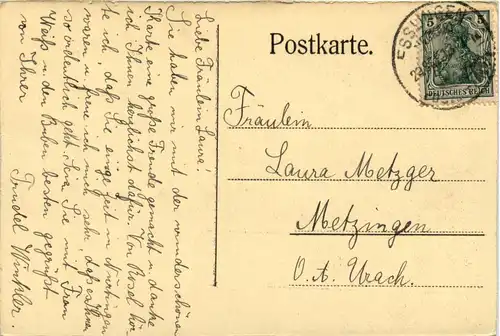 Liebe Fräulein Laura!
Sie haben mir mit der wunderschönen
Karte eine große Freude gemacht u. danke
ich Ihnen herzlichst dafür. Von Rosel hör-
te ich, daß Sie einige Zeit in Nürtingen
waren u. freue ich mich sehr, daß es Ihnen
so ordentlich geht. Sie mit Frau
Weiß u. den Buben bestens gegrüßt
von Ihrer
Trudel Winkler.
Postkarte.
ESSLINGEN
5 5
DEUTSCHES REICH
Fräulein
Laura Metzger
Metzingen
O.A. Urach.